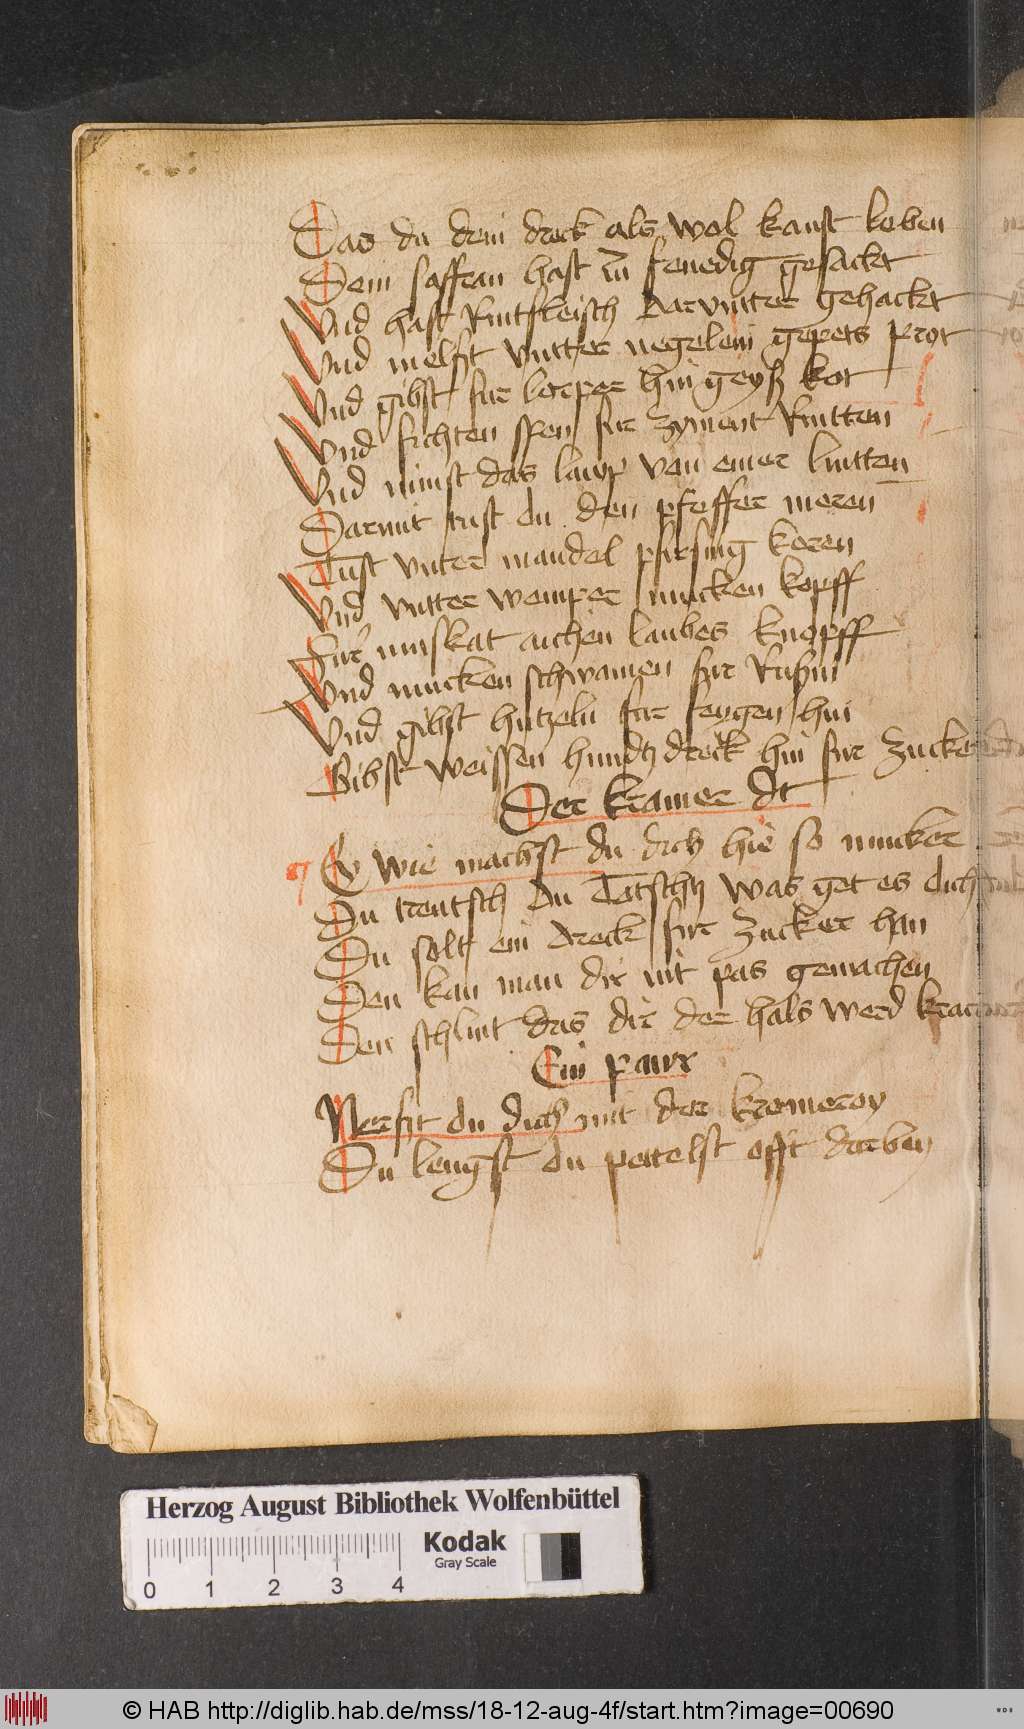 Das du dein dreck als wol kanst loben
Dein saffran hast in fenedig gesacket
Vnd hast Rintfleisch darvnter gehacket
Vnd melst vntter negelein gepets prot
Vnd gibst fur lorper hin geyß kot
Vnd fichten spen fur zyment Rintten
Vnd nimst das laup von einer lintten
Darmit tust du den pfeffer meren
Tust vnter mandel pfirsing keren
Vnd vntter wemper mucken kopff
Fur muskat aichen laubes knopff
Vnd mucken schwamen fur Rubin
Vnd gibst hutzeln fur feygen hin
Gibst weissen hundß dreck hin fur zucker
Der kramer dt
Ey wie machst du dich hie so mucker
Du trentsch du Totsch was get es dich
Du solt ein dreck fur zucker han
Den kan man dir nit pas gemachen
Den schlint das dir der hals werd
Ein pawr
Nerst du dich mit der kremerey
Du lengst du peitelst offt darbey
Herzog August Bibliothek Wolfenbüttel
Kodak
Gray Scale
0 1 2 3 4
© HAB http://diglib.hab.de/mss/18-12-aug-4f/start.htm?image=00690